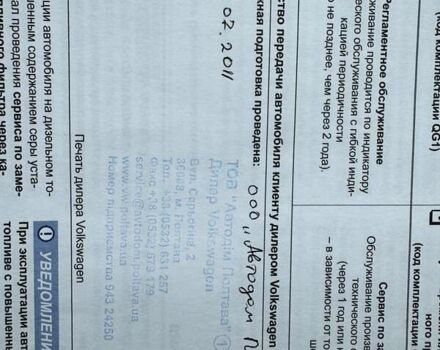 (код комплектации QG1)
Регламентное обслуживание
живание проводится по индикатору
ческого обслуживания с гибкой инди-
кацией периодичности
о не позднее, чем через 2 года).
Сервис по за
Обслуживание произв
технического
(через 1 год или
– в зависимости от то
ного п
(код комплектации
ство передачи автомобиля клиенту дилером Volkswagen
жная подготовка проведена:
ООО „Автодом П
07. 2011
ТОВ "Автодім Полтава"
Дилер Volkswagen
Вул. Серьогіна, 2
36008, м. Полтава
Тел.: +38 (0532) 631 257
Факс: +38 (0532) 679 179
service@avtodom.poltava.ua
www.vw.poltava.ua
Номер підприємства 943 24250
Печать дилера Volkswagen
ции автомобиля на дизельном то-
енным содержанием серы уста-
ал проведения сервиса по заме-
пливного фильтра через ка-
УВЕДОМЛЕНИ
При эксплуатации авто
топливе с повышенны